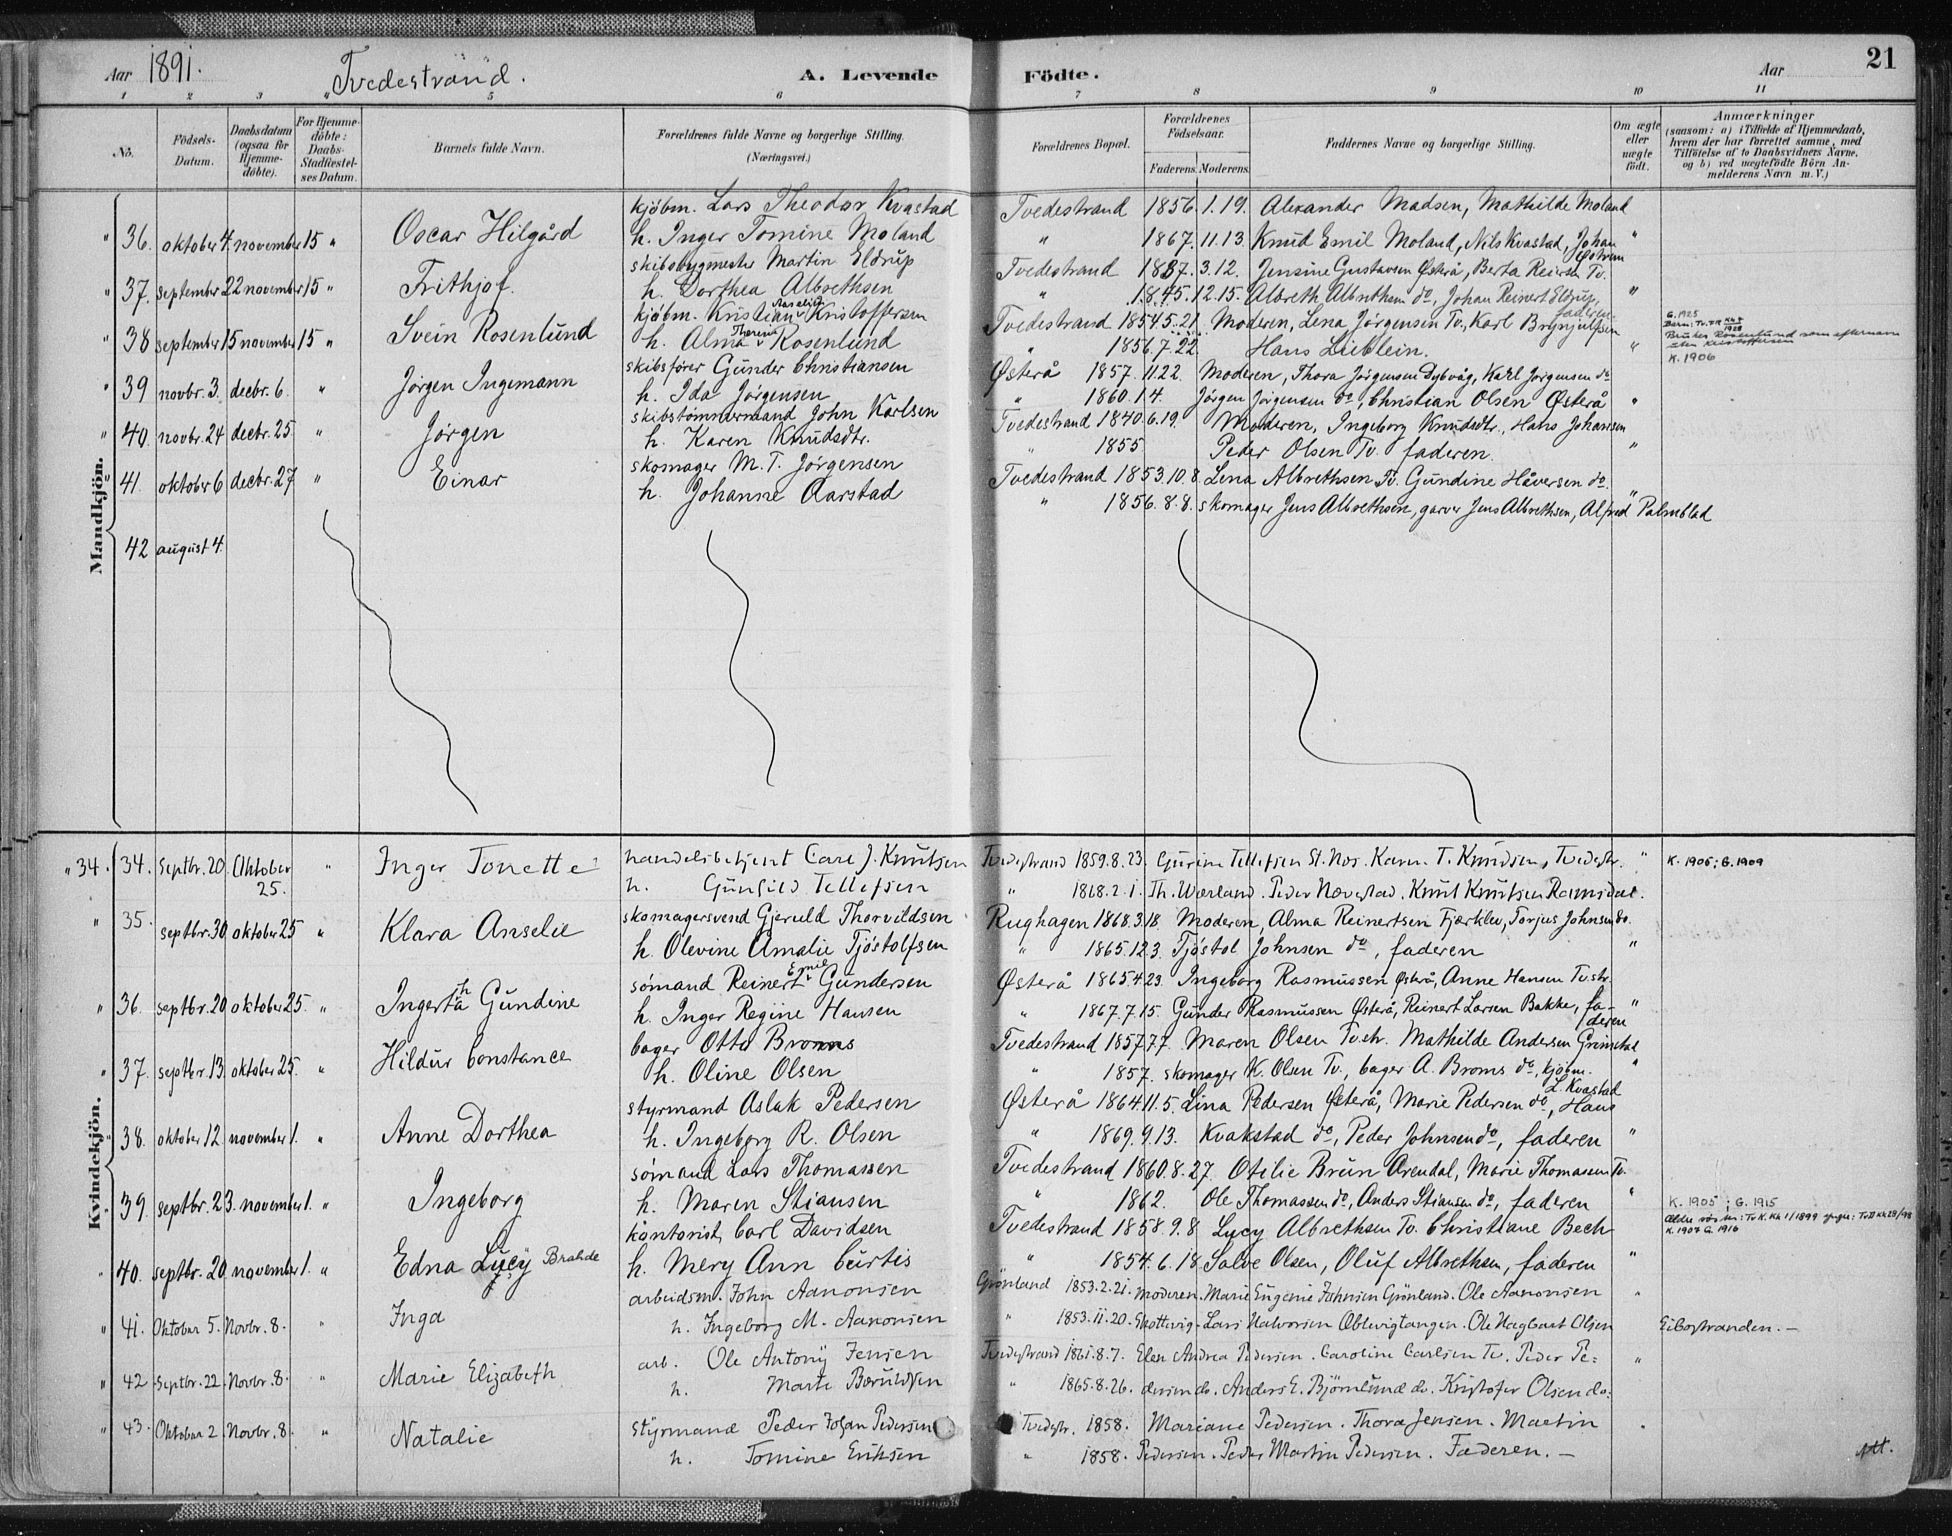 Aar 1891. Tvedestrand. A. Levende Födte. Aar 21
1 2 3 4 5 6 7 8 9 10 11
No.
Födsels-Datum.
Daabsdatum (ogsaa for Hjemme-döbte).
For Hjemme-döbte: Daabs-Stadfæstel-ses Datum.
Barnets fulde Navn.
Forældrenes fulde Navne og borgerlige Stilling. (Næringsvei.)
Forældrenes Bopæl.
Forældrenes Födselsaar. Faderens. Moderens.
Faddernes Navne og borgerlige Stilling.
Om ægte eller uægte födt.
Anmærkninger (saasom: a) i Tilfælde af Hjemmedaab, hvem der har forrettet samme, med Tilföielse af to Daabsvidners Navne, og b) ved uægtefödte Börn An-melderens Navn m. V.)
Mandkjön.
kjöbm. Lars Theodor Kvastad Tvedestrand 1856.1.19. Alexander Madsen, Mathilde Moland
" 36. oktober 4. november 15 " Oscar Hilgård h. Inger Tomine Moland " 1867.11.13. Knud Emil Moland, Nils Kvastad, Johan "
skibsbygmester Martin Eldrup Tvedestrand 1837.3.12. Jensine Gustavsen Østerå, Berta Reiersn Tv.
" 37. september 22 november 15 " Frithjof. h. Dorthea Albrethsen " 1845.12.15. Albreth Albrethsen do, Johan Reinert Eldrup, faderen "
kjöbm. Kristian Kristoffersen Tvedestrand 1854.5.21. Moderen, Lena Jörgensen Tv., Karl Brynjulfsen
" 38 september 15 november 15 " Svein Rosenlund h. Alma Rosenlund " 1856.7.22. Hans Lieblein. "
G. 1925
Bruker Rosenlund som efternavn uten Kristoffersen
K. 1906
skibsförer Gunder Christiansen Østerå 1857.11.22. Moderen, Thora Jörgensen Dybvåg, Karl Jörgensen do
" 39 novbr. 3. decbr. 6. " Jörgen Ingemann h. Ida Jörgensen " 1860.1.4. Jörgen Jörgensen do, Christian Olsen Østerå "
skibstömmermand John Karlsen Tvedestrand 1840.6.19. Moderen, Ingeborg Knudsdtr., Hans Johansen
" 40. novbr. 24 decbr. 25. " Jörgen h. Karen Knudsdtr. " 1855 Peder Olsen Tv. faderen. "
skomager M. T. Jörgensen Tvedestrand 1853.10.8. Lena Albrethsen Tv. Gundine Håversen do.
41. oktober 6 decbr. 27 " Einar h. Johanne Aarstad " 1856.8.8. skomager Jens Albrethsen, garver Jens Albrethsen, Alfred Palmblad "
42 august 4.
Kvindekjön.
handelsbetjent Carl J. Knutsen Tvedestrand 1859.8.23. Gurine Tellefsen St. Nos. Karen T. Knudsen, Tvedestr. "
"34. 34. Septbr. 20. Oktober 25. " Inger Tonette h. Gunhild Tellefsen " 1868.2.1. Th. Værland. Peder Nævestad. Knut Knutsen Ramsdal.
K. 1905; G. 1909
skomagersvend Gjeruld Thorvildsen Rughagen 1868.3.18. Moderen, Alma Reinertsen Fjærklev, Torjus Johnsen do.
" 35. septbr. 30 oktober 25 " Klara Anselie h. Olevine Amalie Tjöstolfsen " 1865.12.3. Tjöstol Johnsen do, faderen "
sömand Reinert Emil Gundersen Østerå 1865.4.23. Ingeborg Rasmussen Østerå, Anne Hansen Tv.str.
" 36. septbr. 20 oktober 25. " Ingertha Gundine h. Inger Regine Hansen " 1867.7.15. Gunder Rasmussen Østerå, Reinert Larsen Bakke, fa-deren "
bager Otto Broms Tvedestrand 1857.7.7. Maren Olsen Tv.str. Mathilde Andersen Grimstad
" 37. septbr. 13. oktober 25. " Hildur Constance h. Oline Olsen " 1857. skomager K. Olsen Tv., bager A. Broms do, kjöbm. L. Kvastad "
styrmand Aslak Pedersen Østerå 1864.11.5. Lina Pedersen Østerå, Marie Pedersen do, Hans
" 38. oktober 12. november 1. " Anne Dorthea h. Ingeborg R. Olsen " 1869.9.13. Kvakstad do, Peder Johnsen do, faderen "
sömand Lars Thomassen Tvedestrand 1860.8.27. Otilie Brun Arendal, Marie Thomassen Tv.
" 39. septbr. 23. november 1. " Ingeborg h. Maren Stiansen " 1862. Ole Thomassen do, Anders Stiansen do, faderen "
K. 1905; G. 1915
kontorist Carl Davidsen Tvedestrand 1858.9.8. Lucy Albrethsen Tv. Christiane Bech
K. 1907 G. 1916
" 40. septbr. 20 november 1. " Edna Lucy Brahde h. Mery Ann Curtis " 1854.6.18. Salve Olsen, Oluf Albrethsen, faderen "
arbeidsm. John Aanonsen Grönland 1853.2.21. Moderen. Marie Eugenie Johnsen Grönland. Ole Aanonsen
" 41. Oktober 5. Novbr. 8. " Inga h. Ingeborg M. Aanonsen " 1853.11.20. Skottevig. Lars Halvorsen Oblevigtangen. Ole Hagbart Olsen Eibostranden. —
arb. Ole Antony Jensen Tvedestrand 1861.8.7. Elen Andrea Pedersen. Caroline Carlsen Tv. Peder Pe=
" 42 Septbr. 22. Novbr. 8. " Marie Elizabeth h. Marte Beruldsen " 1865.8.26. dersen do. Anders E. Björnlund do. Kristofer Olsen do. "
Styrmand Peder Johan Pedersen Tvedestr. 1858. Mariane Pedersen. Thora Jensen. Martin
" 43. Oktober 2. Novbr. 8. " Natalie h. Tomine Eriksen " 1858. Pedersen. Peder Martin Pedersen. Faderen. —